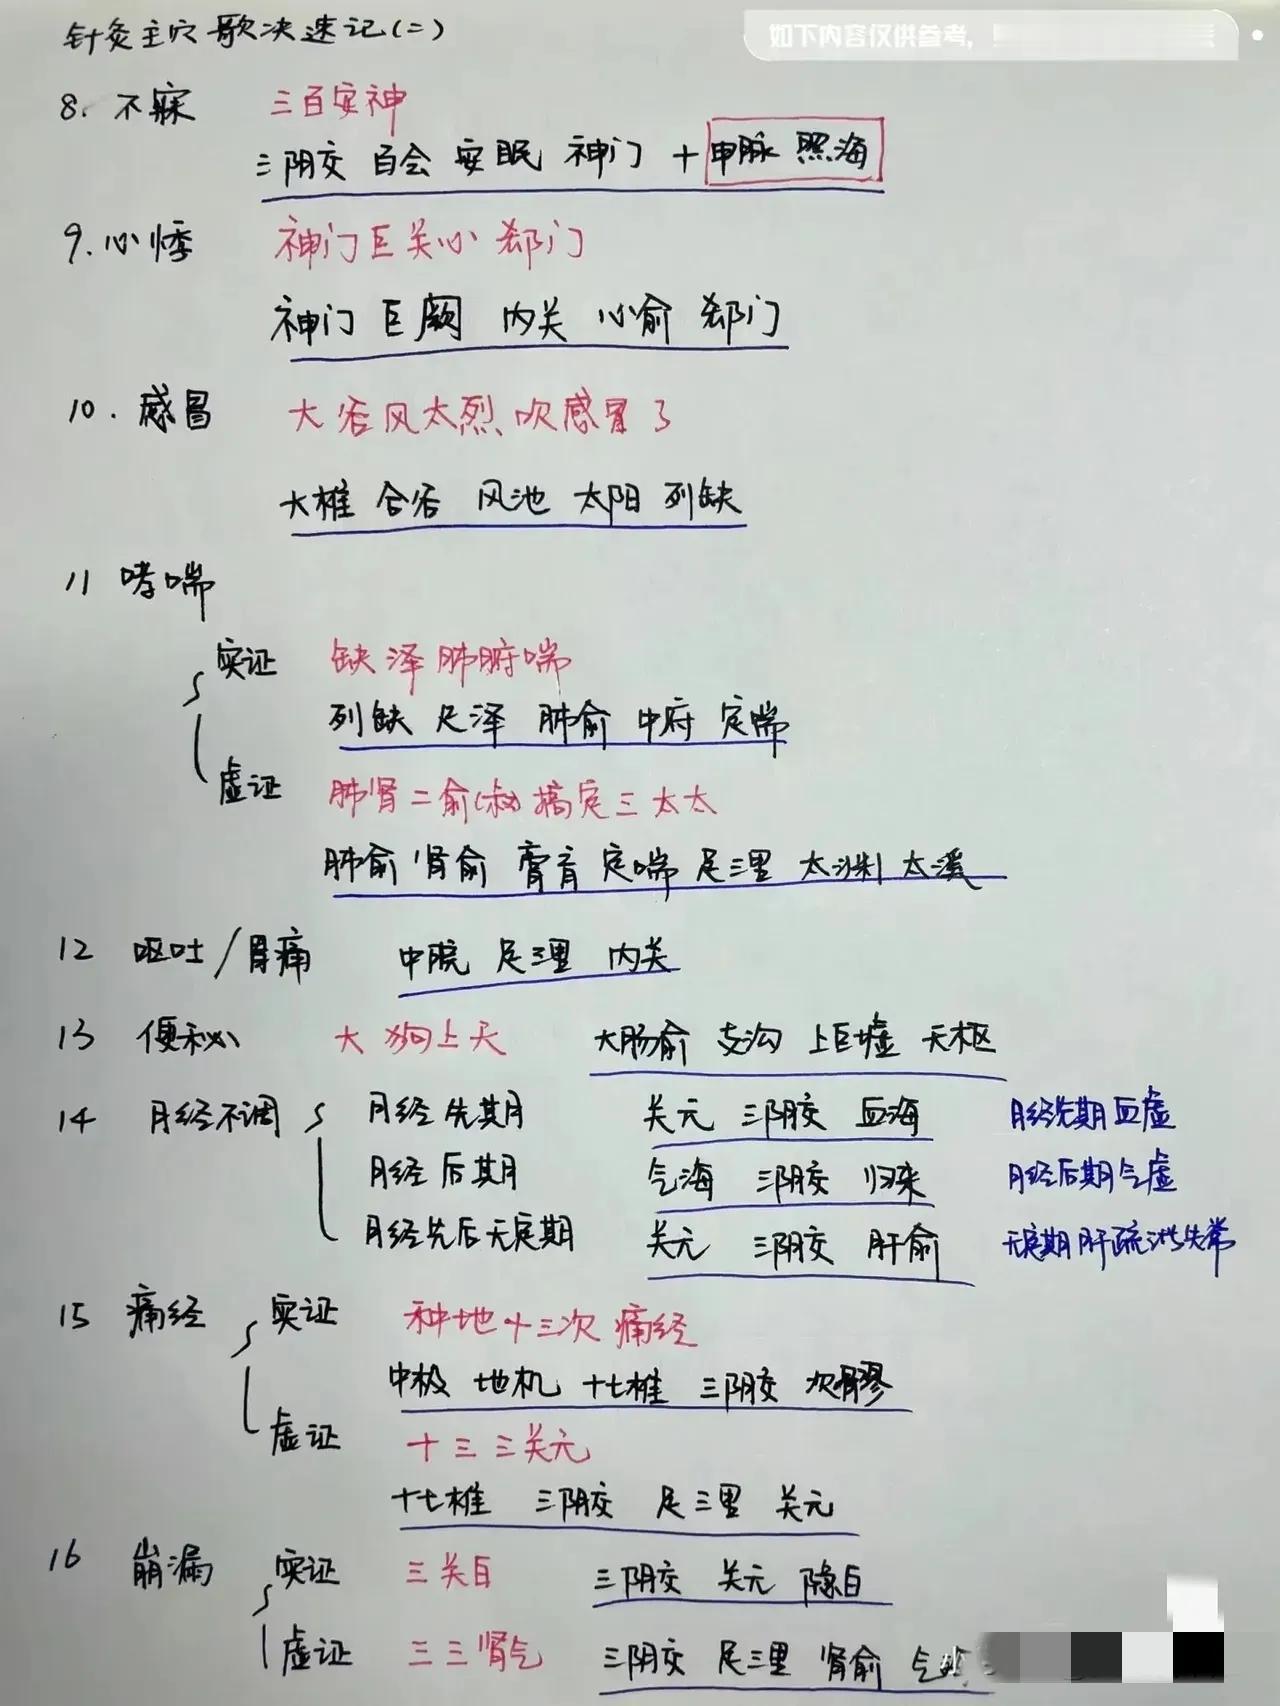 如下内容仅供参考，
针灸主穴歌决速记(二)
8. 不寐 三百安神
三阴交 百会 安眠 神门 + 申脉 照海
9. 心悸 神门巨关心郄门
神门 巨阙 内关 心俞 郄门
10. 感冒 大谷风太烈、吹感冒了
大椎 合谷 风池 太阳 列缺
11 哮喘
实证 缺泽肺腑喘
列缺 尺泽 肺俞 中府 定喘
虚证 肺肾二俞(叔)搞定三太太
肺俞 肾俞 膏肓 定喘 足三里 太渊 太溪
12 呕吐/胃痛 中脘 足三里 内关
13 便秘 大狗上天 大肠俞 支沟 上巨墟 天枢
14 月经不调 月经先期 关元 三阴交 血海 月经先期血虚
月经后期 气海 三阴交 归来 月经后期气虚
月经先后无定期 关元 三阴交 肝俞 无定期肝疏泄失常
15 痛经 实证 种地十三次痛经
中极 地机 十七椎 三阴交 次髎
虚证 十三三关元
十七椎 三阴交 足三里 关元
16 崩漏 实证 三关白 三阴交 关元 隐白
虚证 三三肾气 三阴交 足三里 肾俞 气海